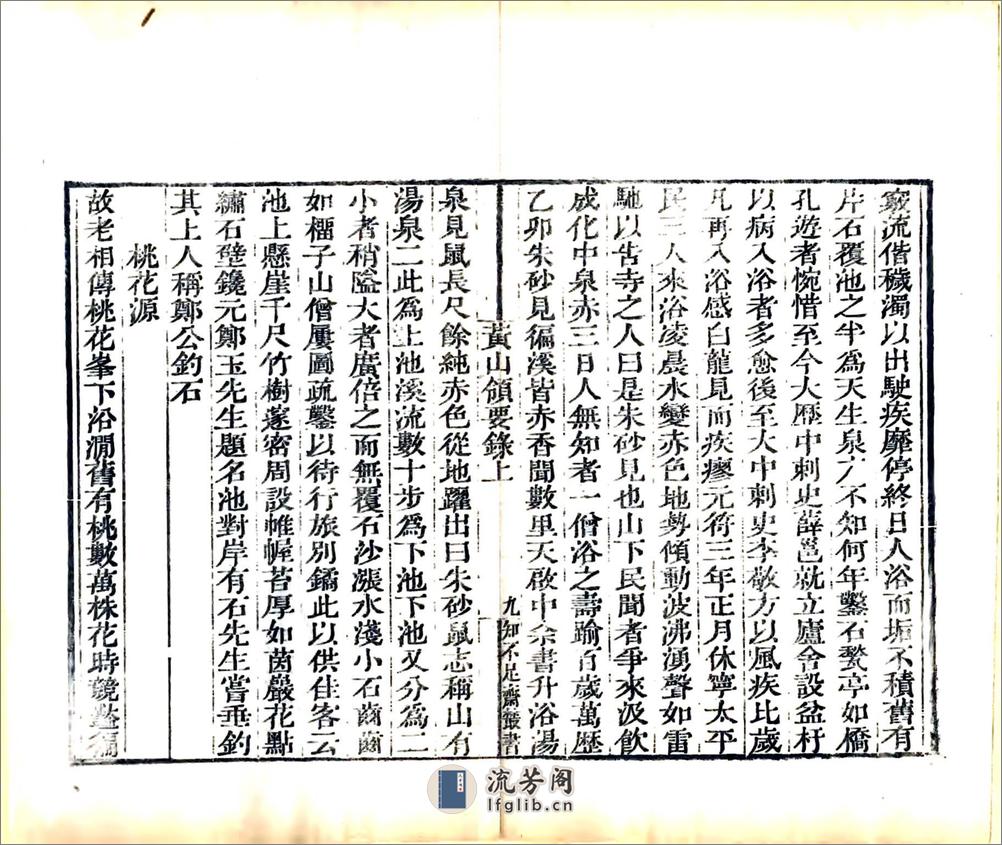 竅流偕穢濁以出駛疾靡停終日人浴而垢不積舊有
片石覆池之半為天生泉穴不知何年鑿石甃亭如橋
孔遊者惋惜至今大歷中刺史薛邕就立廬舍設盆杅
以病入浴者多愈後至大中刺史李敬方以風疾比歲
凡再入浴感白龍見而疾瘳元符三年正月休寧太平
民三人來浴凌晨水變赤色地勢傾動波沸湧聲如雷
馳以告寺之人曰是朱砂見也山下民聞者爭來汲飲
成化中泉赤三日人無知者一僧浴之壽踰百歲萬歷
乙卯朱砂見徧溪皆赤香聞數里天啟中余書升浴湯
黃山領要錄上
九
知不足齋叢書
泉見鼠長尺餘純赤色從地躍出曰朱砂鼠志稱山有
湯泉二此為上池溪流數十步為下池下池又分為二
小者稍隘大者廣倍之而無覆石沙漲水淺小石齒齒
如橊子山僧屢圖疏鑿以待行旅別鐍此以供佳客云
池上懸崖千尺竹樹邃密周設帷幄苔厚如茵巖花點
繡石壁鑱元鄭玉先生題名池對岸有石先生嘗垂釣
其上人稱鄭公釣石
桃花源
故老相傳桃花峯下沿澗舊有桃數萬株花時鏡壑編